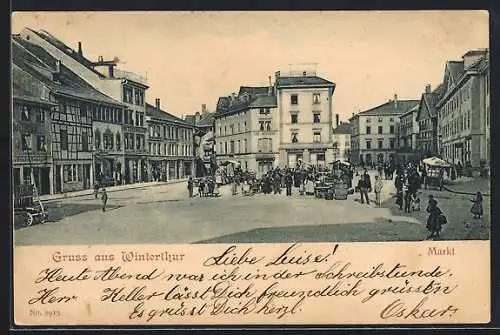 Gruss aus Winterthur
Markt
Liebe Luise!
Heute Abend war ich in der Schreibstunde.
Herr Keller lässt Dich freundlich grüssen
Es grüsst Dich herzl. Oskar
No. 2915